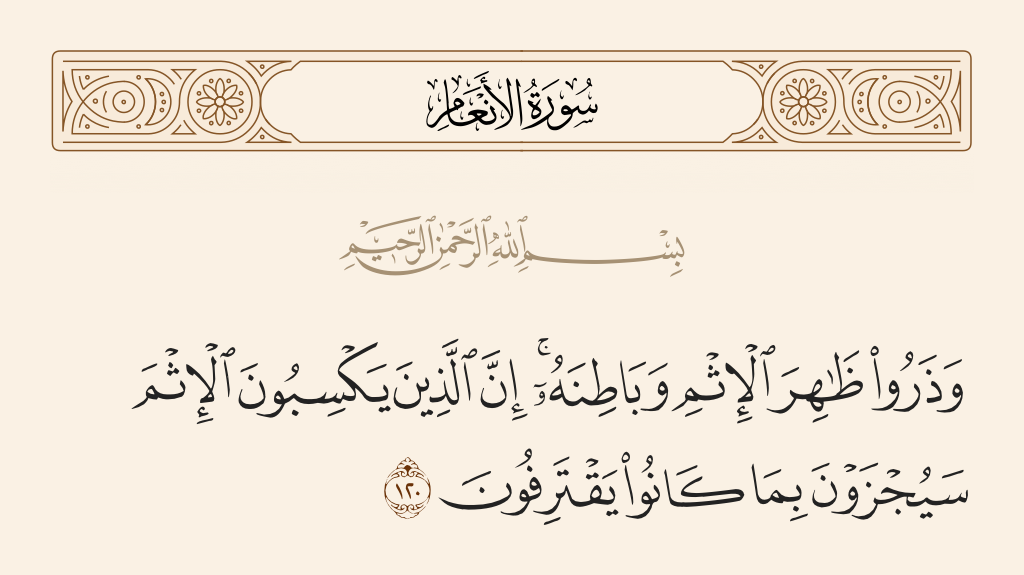 سُورَةُ الأَنْعَامِ
بِسْمِ ٱللَّهِ ٱلرَّحْمَٰنِ ٱلرَّحِيمِ
وَذَرُوا۟ ظَٰهِرَ ٱلْإِثْمِ وَبَاطِنَهُۥٓ ۚ إِنَّ ٱلَّذِينَ يَكْسِبُونَ ٱلْإِثْمَ
سَيُجْزَوْنَ بِمَا كَانُوا۟ يَقْتَرِفُونَ ١٢٠